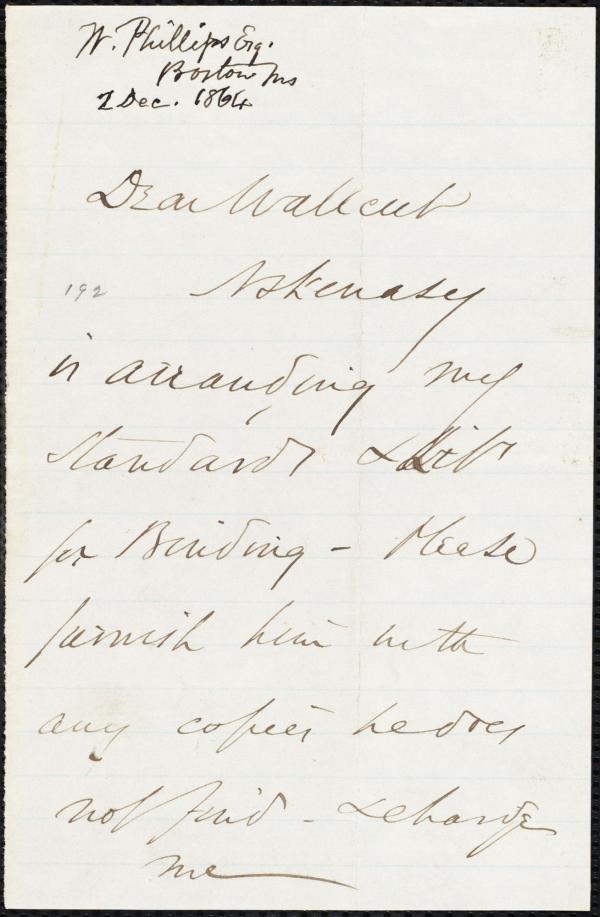 W. Phillips Esq.
Boston Ms
2 Dec. 1864
Dear Wallcut
192
is arranging my
Standards & Lib
for Binding - Please
furnish him with
any copies he does
not find - & charge
me